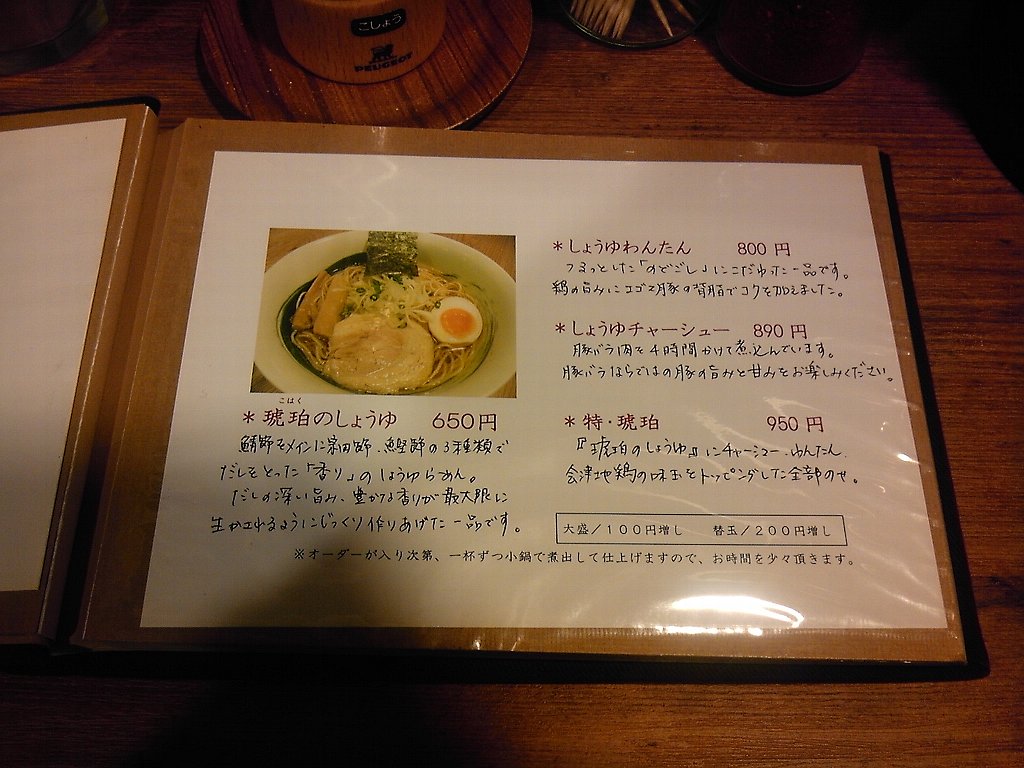 こしょう
PEUGEOT
こはく
＊琥珀のしょうゆ 650円
鯖節をメインに宗田節、鰹節の3種類で
だしをとった「香り」のしょうゆらぁめん。
だしの深い旨み、豊かな香りが最大限に
生かされるようにじっくり作りあげた一品です。
＊しょうゆわんたん 800円
つるっとした「のどごし」にこだわった一品です。
鶏の旨みにエゴマ豚の背脂でコクを加えました。
＊しょうゆチャーシュー 890円
豚バラ肉を4時間かけて煮込んでいます。
豚バラならではの豚の旨みと甘みをお楽しみください。
＊特・琥珀 950円
『琥珀のしょうゆ』にチャーシュー、わんたん、
会津地鶏の味玉をトッピングした全部のせ。
大盛／100円増し 替玉／200円増し
※オーダーが入り次第、一杯ずつ小鍋で煮出して仕上げますので、お時間を少々頂きます。